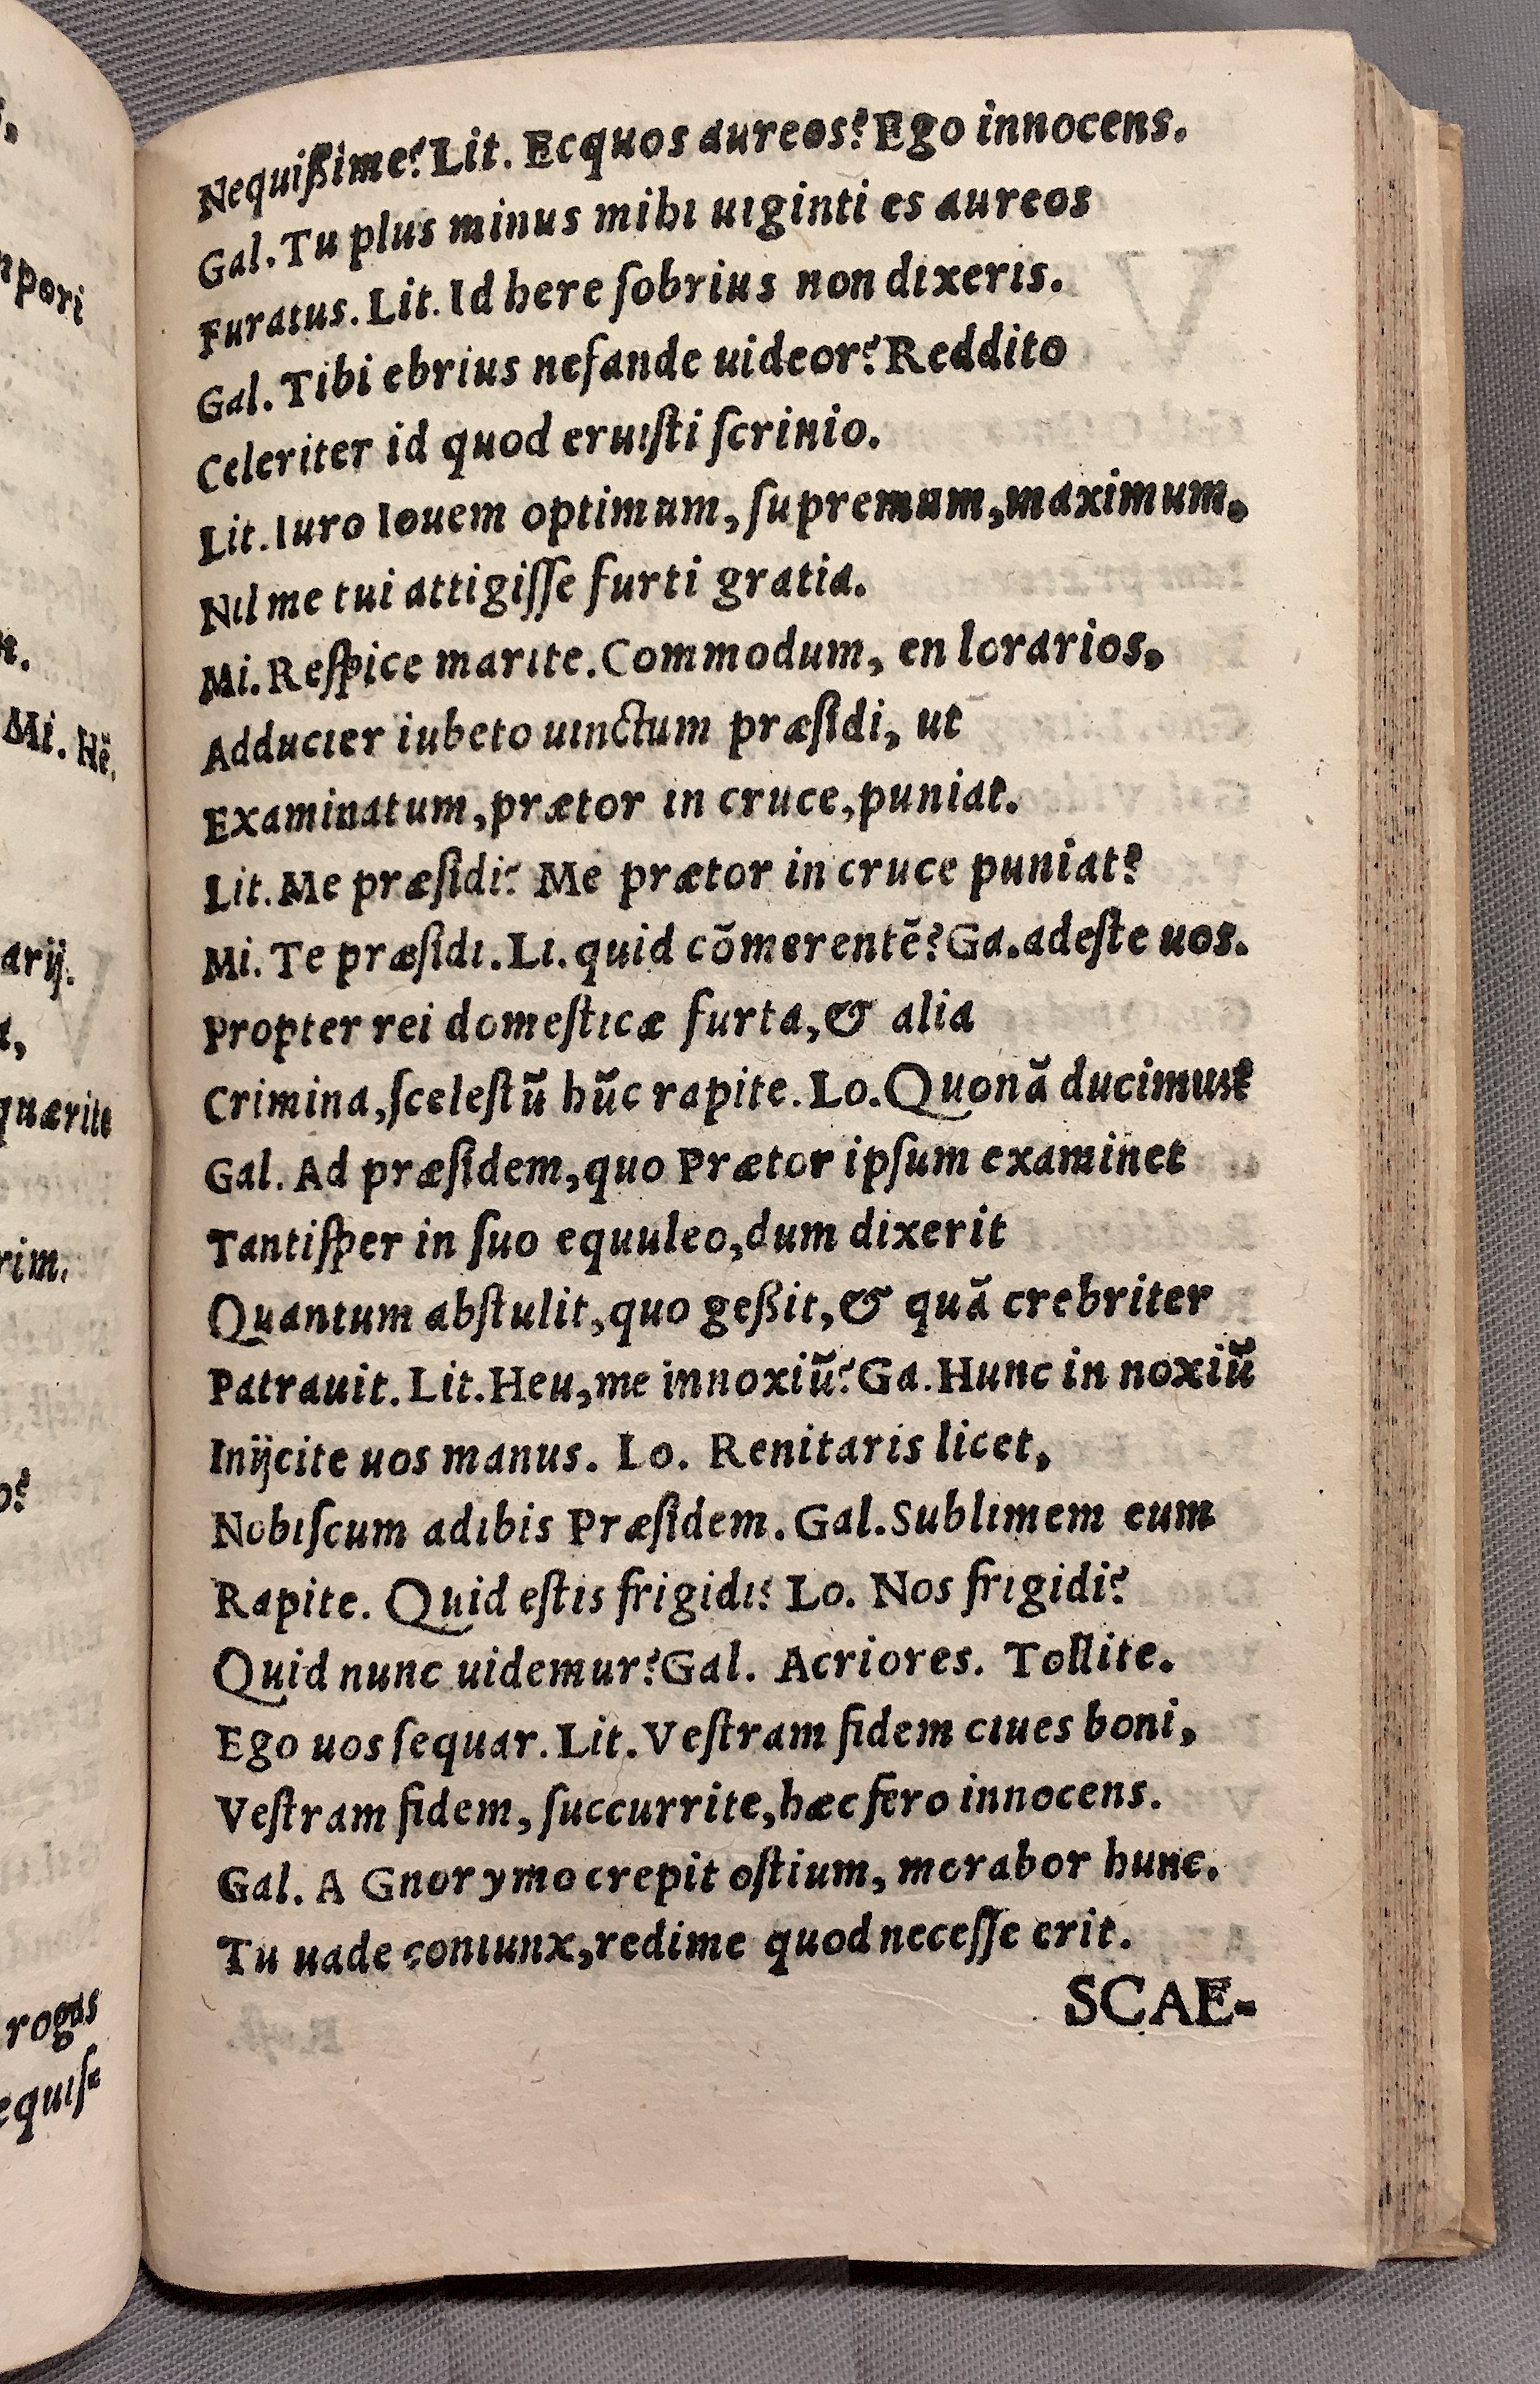 Nequißime? Lit. Ecquos aureos? Ego innocens.
Gal. Tu plus minus mihi uiginti es aureos
Furatus. Lit. Id here ſobrius non dixeris.
Gal. Tibi ebrius nefande uideor? Reddito
Celeriter id quod eruiſti ſcrinio.
Lit. Iuro Iouem optimum, ſupremum, maximum.
Nil me tui attigiſſe furti gratia.
Mi. Reſpice marite. Commodum, en lorarios,
Adducier iubeto uinctum præſidi, ut
Examinatum, prætor in cruce, puniat.
Lit. Me præſidi? Me prætor in cruce puniat?
Mi. Te præſidi. Li. quid cõmerentē? Ga. adeſte uos.
Propter rei domeſticæ furta, & alia
Crimina, ſceleſtũ hũc rapite. Lo. Quonã ducimus?
Gal. Ad præſidem, quo Prætor ipſum examinet
Tantiſper in ſuo equuleo, dum dixerit
Quantum abſtulit, quo geßit, & quã crebriter
Patrauit. Lit. Heu, me innoxiũ? Ga. Hunc in noxiũ
Inijcite uos manus. Lo. Renitaris licet,
Nobiſcum adibis Præſidem. Gal. Sublimem eum
Rapite. Quid eſtis frigidi? Lo. Nos frigidi?
Quid nunc uidemur? Gal. Acriores. Tollite.
Ego uos ſequar. Lit. Veſtram fidem ciues boni,
Veſtram fidem, ſuccurrite, hæc fero innocens.
Gal. A Gnorymo crepit oſtium, morabor hunc.
Tu uade coniunx, redime quod neceſſe erit.
SCAE-